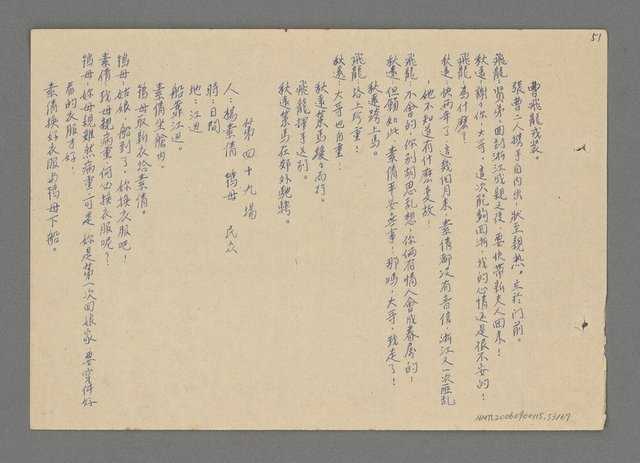 51
曹飛龍戎裝。
張曹二人携手自內出，狀至親热，立於门前。
飛龍：賢弟，回到浙江成親之後，要快帶新夫人回来！
秋遠：謝々你，大哥，這次能夠回浙，我的心情还是很不安的！
飛龍：為什麼？
秋遠：快两年了，這幾個月来，素倩都沒有音信，浙江又一次匪乱
，她不知道有什麼变故，
飛龍：不會的，你別胡思乱想，你倆有情人會成眷屬的！
秋遠：但願如此，素倩平安無事，那嗎，大哥，我走了！
秋遠踏上馬。
飛龍：路上珍重！
秋遠：大哥也自重！
秋遠策馬緩々而行。
飛龍揮手送別。
秋遠策馬在郊外馳騁。
第四十九場
人：楊素倩 鴇母 民众
時：日間
地：江边
船靠江边。
素倩坐艙內。
鴇母取新衣給素倩。
鴇母：姑娘，船到了，妳換衣服吧！
素倩：我母親病重，何必換衣服呢？
鴇母：妳母親雖然病重，可是，妳是第一次回娘家，要穿件好
看的衣服才好！
素倩換好衣服与鴇母下船。
NMTL20060400115.53/67